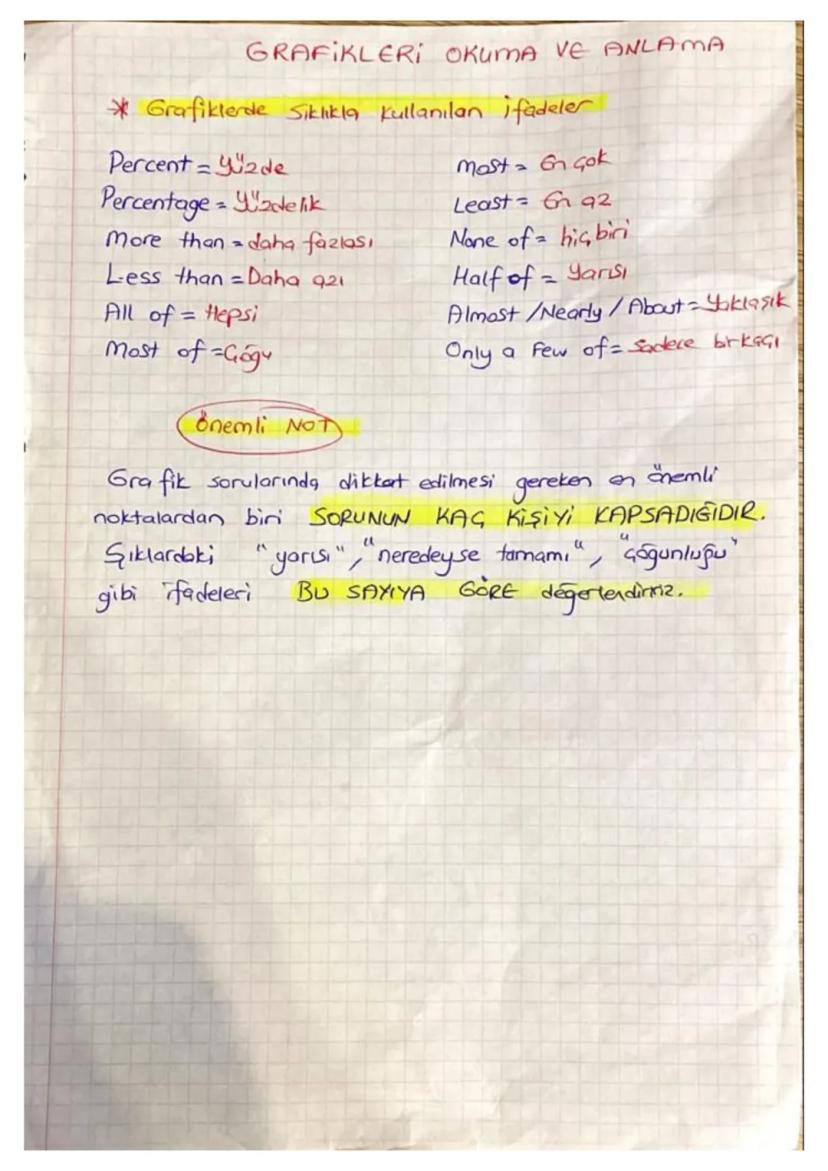 GRAFİKLERİ OKUMA VE ANLAMA
* Grafiklerde Sıklıkla Kullanılan İfadeler
Percent = Yüzde
Percentage = Yüzdelik
More than = daha fazlası
Less than = Daha azı
All of = Hepsi
Most of = Çoğu
Most = En çok
Least = En az
None of = hiçbiri
Half of = Yarısı
Almost / Nearly / About = Yaklaşık
Only a Few of = Sadece birkaçı
Önemli NOT
Grafik sorularında dikkat edilmesi gereken en önemli
noktalardan biri SORUNUN KAÇ KİŞİYİ KAPSADIĞIDIR.
Şıklardaki "yarısı", "neredeyse tamamı", "çoğunluğu"
gibi ifadeleri BU SAYIYA GÖRE değerlendiririz.